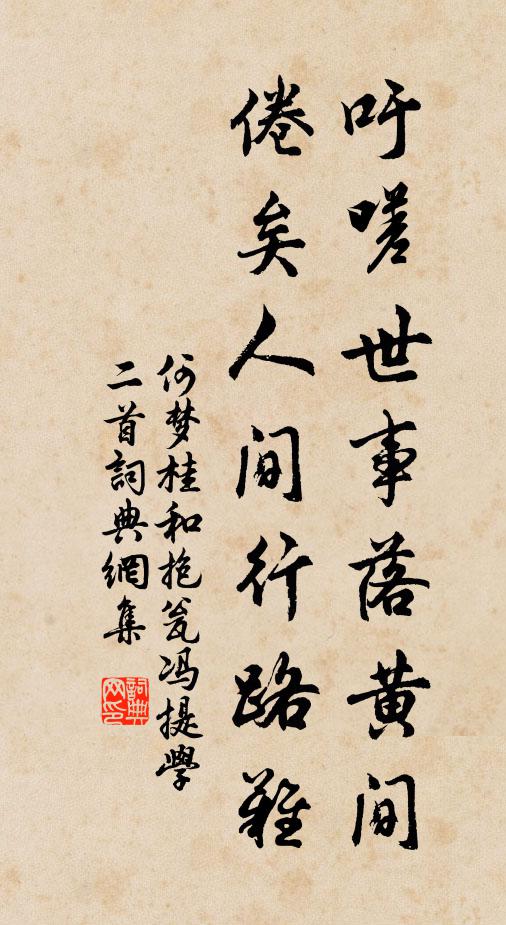 吁嗟世事落黄間
倦矣人间行路難
何梦桂和抱瓮冯提學
二首詞典網集
詞典网印